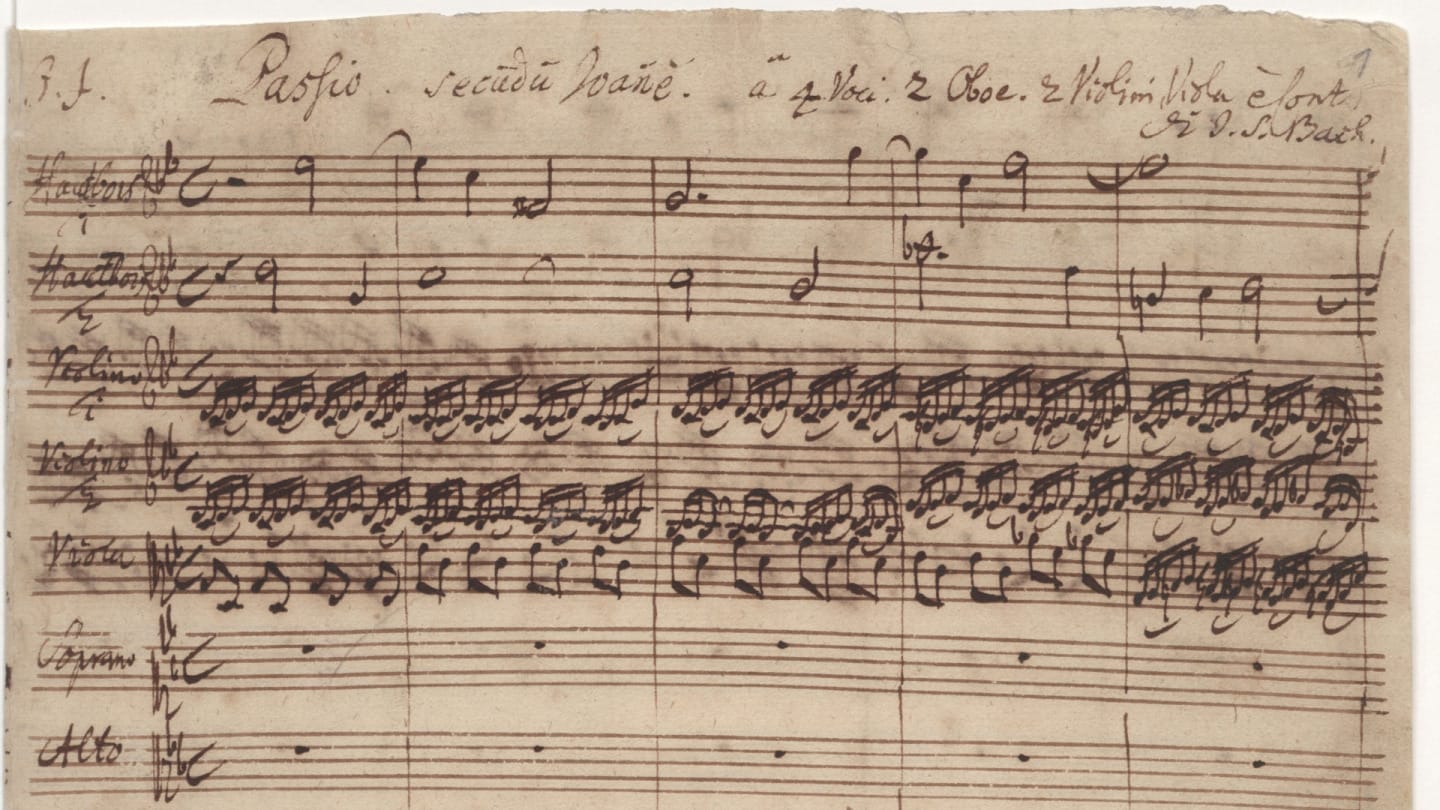 J. J. Passio secūdū Joañē. â 4 Voci. 2 Oboe. 2 Violini Viola è Cont. 1
di J. S. Bach.
Hautbois
1
Hautbois
2
Violino
1
Violino
2
Viola
Soprano
Alto